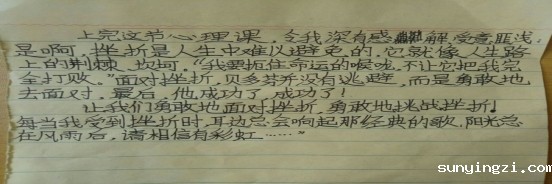 上完这节心理课，令我深有感解受意匪浅，
是啊，挫折是人生中难以避免的，它就像人生路
上的荆棘、坎坷，“我要扼住命运的喉咙，不让它把我完
全打败。”面对挫折，贝多芬并没有逃避，而是勇敢地
去面对，最后，他成功了，成功了！
让我们勇敢地面对挫折，勇敢地挑战挫折！
每当我受到挫折时，耳边总会响起那经典的歌，阳光总
在风雨后，请相信有彩虹……”
sunyingzi.com